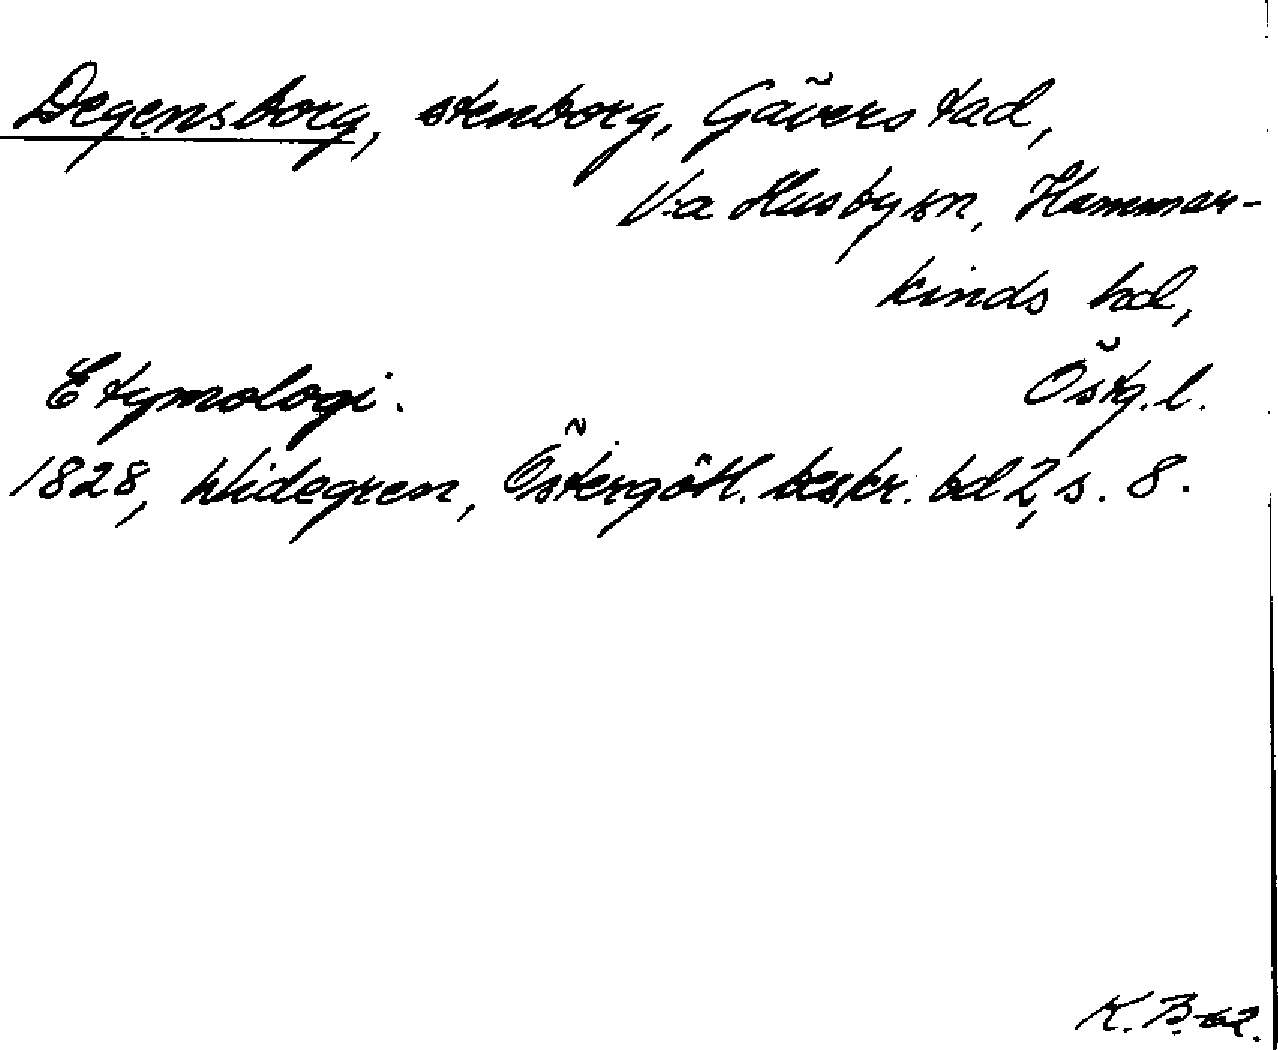 Degensborg, stenborg, Gäverstad,
V:a Husby sn, Hammar-
kinds hd,
Östg. l.
Etymologi.
1828, Widegren, Östergötl. beskr. bd 2, s. 8.
K. B-